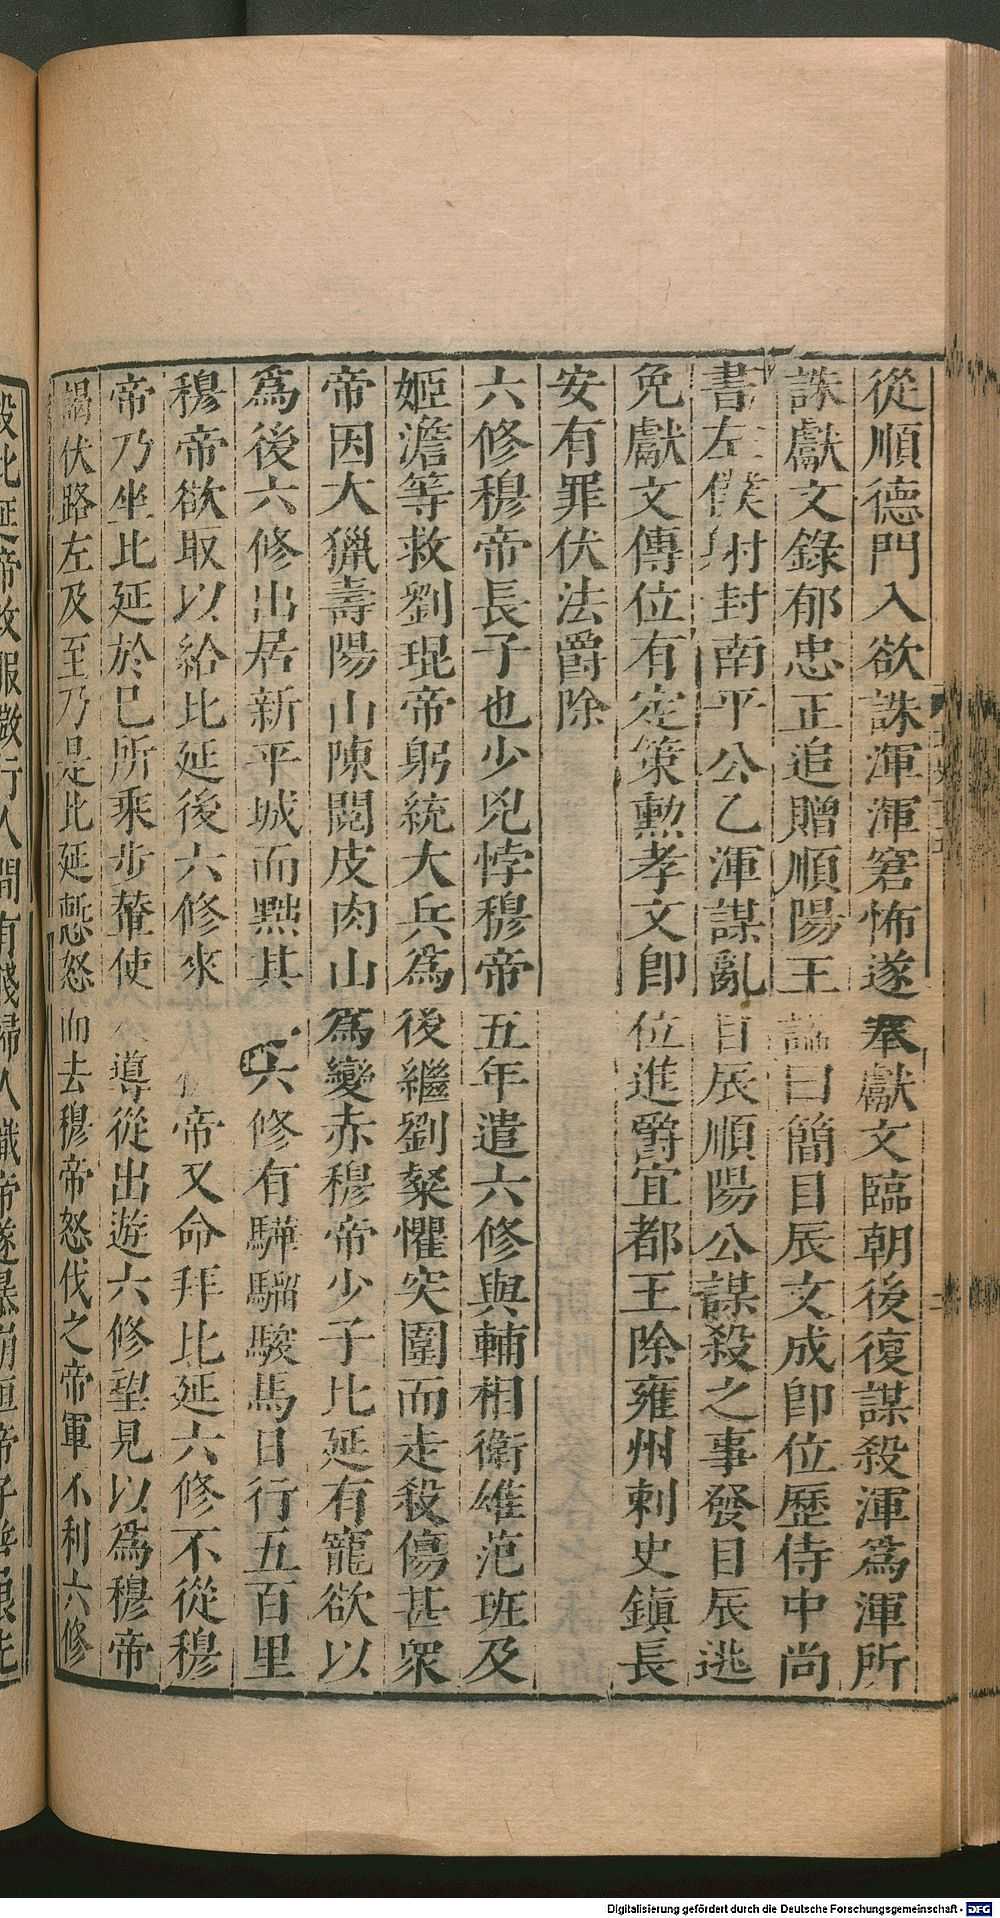 從順德門入欲誅渾渾窘怖遂奉獻文臨朝後復謀殺渾爲渾所
誅獻文錄郁忠正追贈順陽王謚曰簡目辰文成卽位歷侍中尚
書左僕射封南平公乙渾謀亂目辰順陽公謀殺之事發目辰逃
免獻文傳位有定策勲孝文卽位進爵宜都王除雍州刺史鎮長
安有罪伏法爵除
六修穆帝長子也少兇悖穆帝五年遣六修與輔相衛雄范班及
姬澹等救劉琨帝躬統大兵爲後繼劉粲懼突圍而走殺傷甚衆
帝因大獵壽陽山陳閱皮肉山爲變赤穆帝少子比延有寵欲以
爲後六修出居新平城而黜其六修有驊騮駿馬日行五百里
穆帝欲取以給比延後六修來帝又命拜比延六修不從穆
帝乃坐比延於已所乘步輦使導從出遊六修望見以爲穆帝
謁伏路左及至乃是比延慙怒而去穆帝怒伐之帝軍不利六修
殺比延帝改服微行人間有賤婦人識帝遂暴崩桓帝子普根先
Digitalisierung gefördert durch die Deutsche Forschungsgemeinschaft - DFG